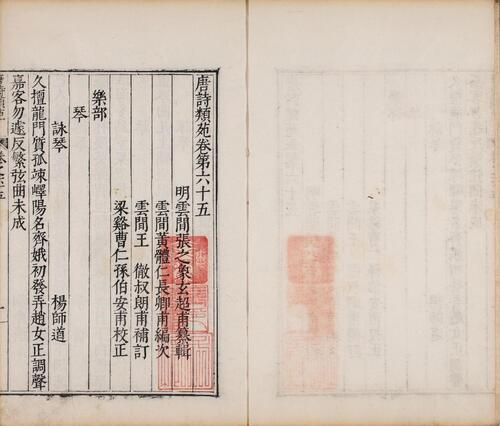 唐詩類苑卷第六十五
明雲間張之象玄超甫纂輯
雲間黃體仁長卿甫編次
雲間王　徹叔朗甫補訂
梁谿曹仁孫伯安甫校正
樂部
琴
詠琴　楊師道
久擅龍門質孤竦嶧陽名齊娥初發弄趙女正調聲
嘉客勿遽反繁弦曲未成